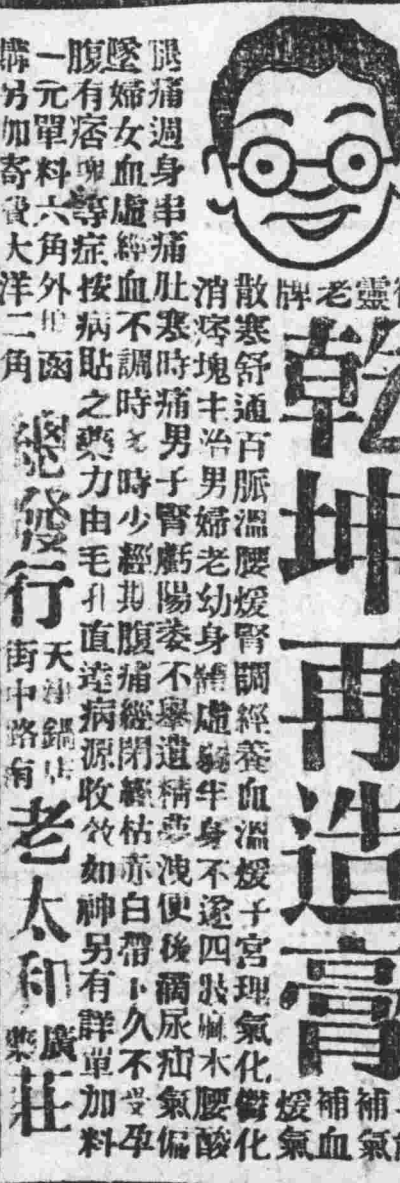 靈老牌
乾坤再造膏
補氣
補血
煖氣
散寒舒通百脈溫腰煖腎調經養血溫煖子宮理氣化鬱化
消痞塊主治男婦老幼身體虛弱半身不遂四肢麻木腰酸
腿痛週身串痛肚寒時痛男子腎虧陽委不舉遺精夢洩便後滴尿疝氣偏
墜婦女血虛經血不調時多時少經期腹痛經閉經枯赤白帶下久不受孕
腹有痞塊等症按病貼之藥力由毛孔直達病源收效如神另有詳單加料
一元單料六角外埠函
購另加寄費大洋二角
總發行
天津鍋店
街中路南
老太和
廣藥
莊